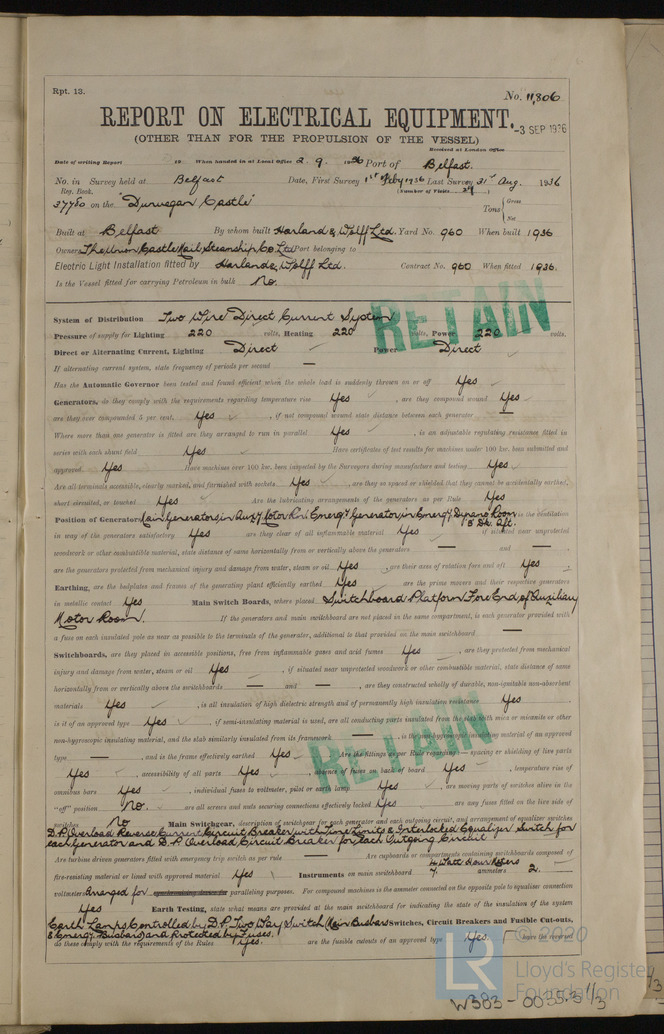 Rpt. 13.
No. 11,806
REPORT ON ELECTRICAL EQUIPMENT.
-3 SEP 1936
(OTHER THAN FOR THE PROPULSION OF THE VESSEL)
Received at London Office
Date of writing Report 19 When handed in at Local Office 2. 9. 1936 Port of Belfast.
No. in Survey held at Belfast Date, First Survey 1st Feby 1936 Last Survey 31st Aug. 1936
Reg. Book. (Number of Visits
37780 on the "Dunvegan Castle" Tons { Gross Net
Built at Belfast By whom built Harland & Wolff Ltd. Yard No. 960 When built 1936
Owners The Union Castle Mail Steamship Co. Ltd Port belonging to
Electric Light Installation fitted by Harland & Wolff Ltd. Contract No. 960 When fitted 1936.
Is the Vessel fitted for carrying Petroleum in bulk No.
RETAIN
System of Distribution Two Wire Direct Current System
Pressure of supply for Lighting 220 volts, Heating 220 volts, Power 220 volts.
Direct or Alternating Current, Lighting Direct Power Direct
If alternating current system, state frequency of periods per second —
Has the Automatic Governor been tested and found efficient when the whole load is suddenly thrown on or off Yes
Generators, do they comply with the requirements regarding temperature rise Yes , are they compound wound Yes
are they over compounded 5 per cent. Yes , if not compound wound state distance between each generator —
Where more than one generator is fitted are they arranged to run in parallel Yes , is an adjustable regulating resistance fitted in
series with each shunt field Yes Have certificates of test results for machines under 100 kw. been submitted and
approved Yes Have machines over 100 kw. been inspected by the Surveyors during manufacture and testing Yes
Are all terminals accessible, clearly marked, and furnished with sockets Yes , are they so spaced or shielded that they cannot be accidentally earthed,
short circuited, or touched Yes Are the lubricating arrangements of the generators as per Rule Yes
Position of Generators Main Generators in Auxy Motor Rm. Emergy Generator in Emergy Dynamo Room is the ventilation
B Dk. Aft.
in way of the generators satisfactory Yes are they clear of all inflammable material Yes if situated near unprotected
woodwork or other combustible material, state distance of same horizontally from or vertically above the generators — and —
are the generators protected from mechanical injury and damage from water, steam or oil Yes , are their axes of rotation fore and aft Yes
Earthing, are the bedplates and frames of the generating plant efficiently earthed Yes are the prime movers and their respective generators
in metallic contact Yes Main Switch Boards, where placed Switchboard Platform Fore End of Auxiliary
Motor Room. If the generators and main switchboard are not placed in the same compartment, is each generator provided with
a fuse on each insulated pole as near as possible to the terminals of the generator, additional to that provided on the main switchboard —
Switchboards, are they placed in accessible positions, free from inflammable gases and acid fumes Yes , are they protected from mechanical
injury and damage from water, steam or oil Yes , if situated near unprotected woodwork or other combustible material, state distance of same
horizontally from or vertically above the switchboards — and — , are they constructed wholly of durable, non-ignitable non-absorbent
materials Yes , is all insulation of high dielectric strength and of permanently high insulation resistance Yes
is it of an approved type Yes , if semi-insulating material is used, are all conducting parts insulated from the slab with mica or micanite or other
non-hygroscopic insulating material, and the slab similarly insulated from its framework — , is the non-hygroscopic insulating material of an approved
type — , and is the frame effectively earthed Yes Are the fittings as per Rule regarding:— spacing or shielding of live parts
RETAIN
Yes , accessibility of all parts Yes , absence of fuses on back of board Yes , temperature rise of
omnibus bars Yes , individual fuses to voltmeter, pilot or earth lamp Yes , are moving parts of switches alive in the
"off" position No. are all screws and nuts securing connections effectively locked Yes are any fuses fitted on the live side of
switches No Main Switchgear, description of switchgear for each generator and each outgoing circuit, and arrangement of equalizer switches
D.P. Overload Reverse Current Circuit Breaker with Time Limits & Interlocked Equalizer Switch for
each Generator and D.P. Overload Circuit Breaker for each Outgoing Circuit
Are turbine driven generators fitted with emergency trip switch as per rule — Are cupboards or compartments containing switchboards composed of
fire-resisting material or lined with approved material Yes Instruments on main switchboard 7. ammeters 2.
4 Watt Hour Meters
voltmeters Arranged for paralleling purposes. For compound machines is the ammeter connected on the opposite pole to equaliser connection
Yes Earth Testing, state what means are provided at the main switchboard for indicating the state of the insulation of the system
Earth Lamps Controlled by D.P. Two Way Switch (Main Busbars Switches, Circuit Breakers and Fusible Cut-outs,
& Emergy. Busbars) and Protected by Fuses.
do these comply with the requirements of the Rules Yes. are the fusible cutouts of an approved type Yes. have the reversed
© 2020
LR
Lloyd's Register
Foundation
W383-0035.3 1/3